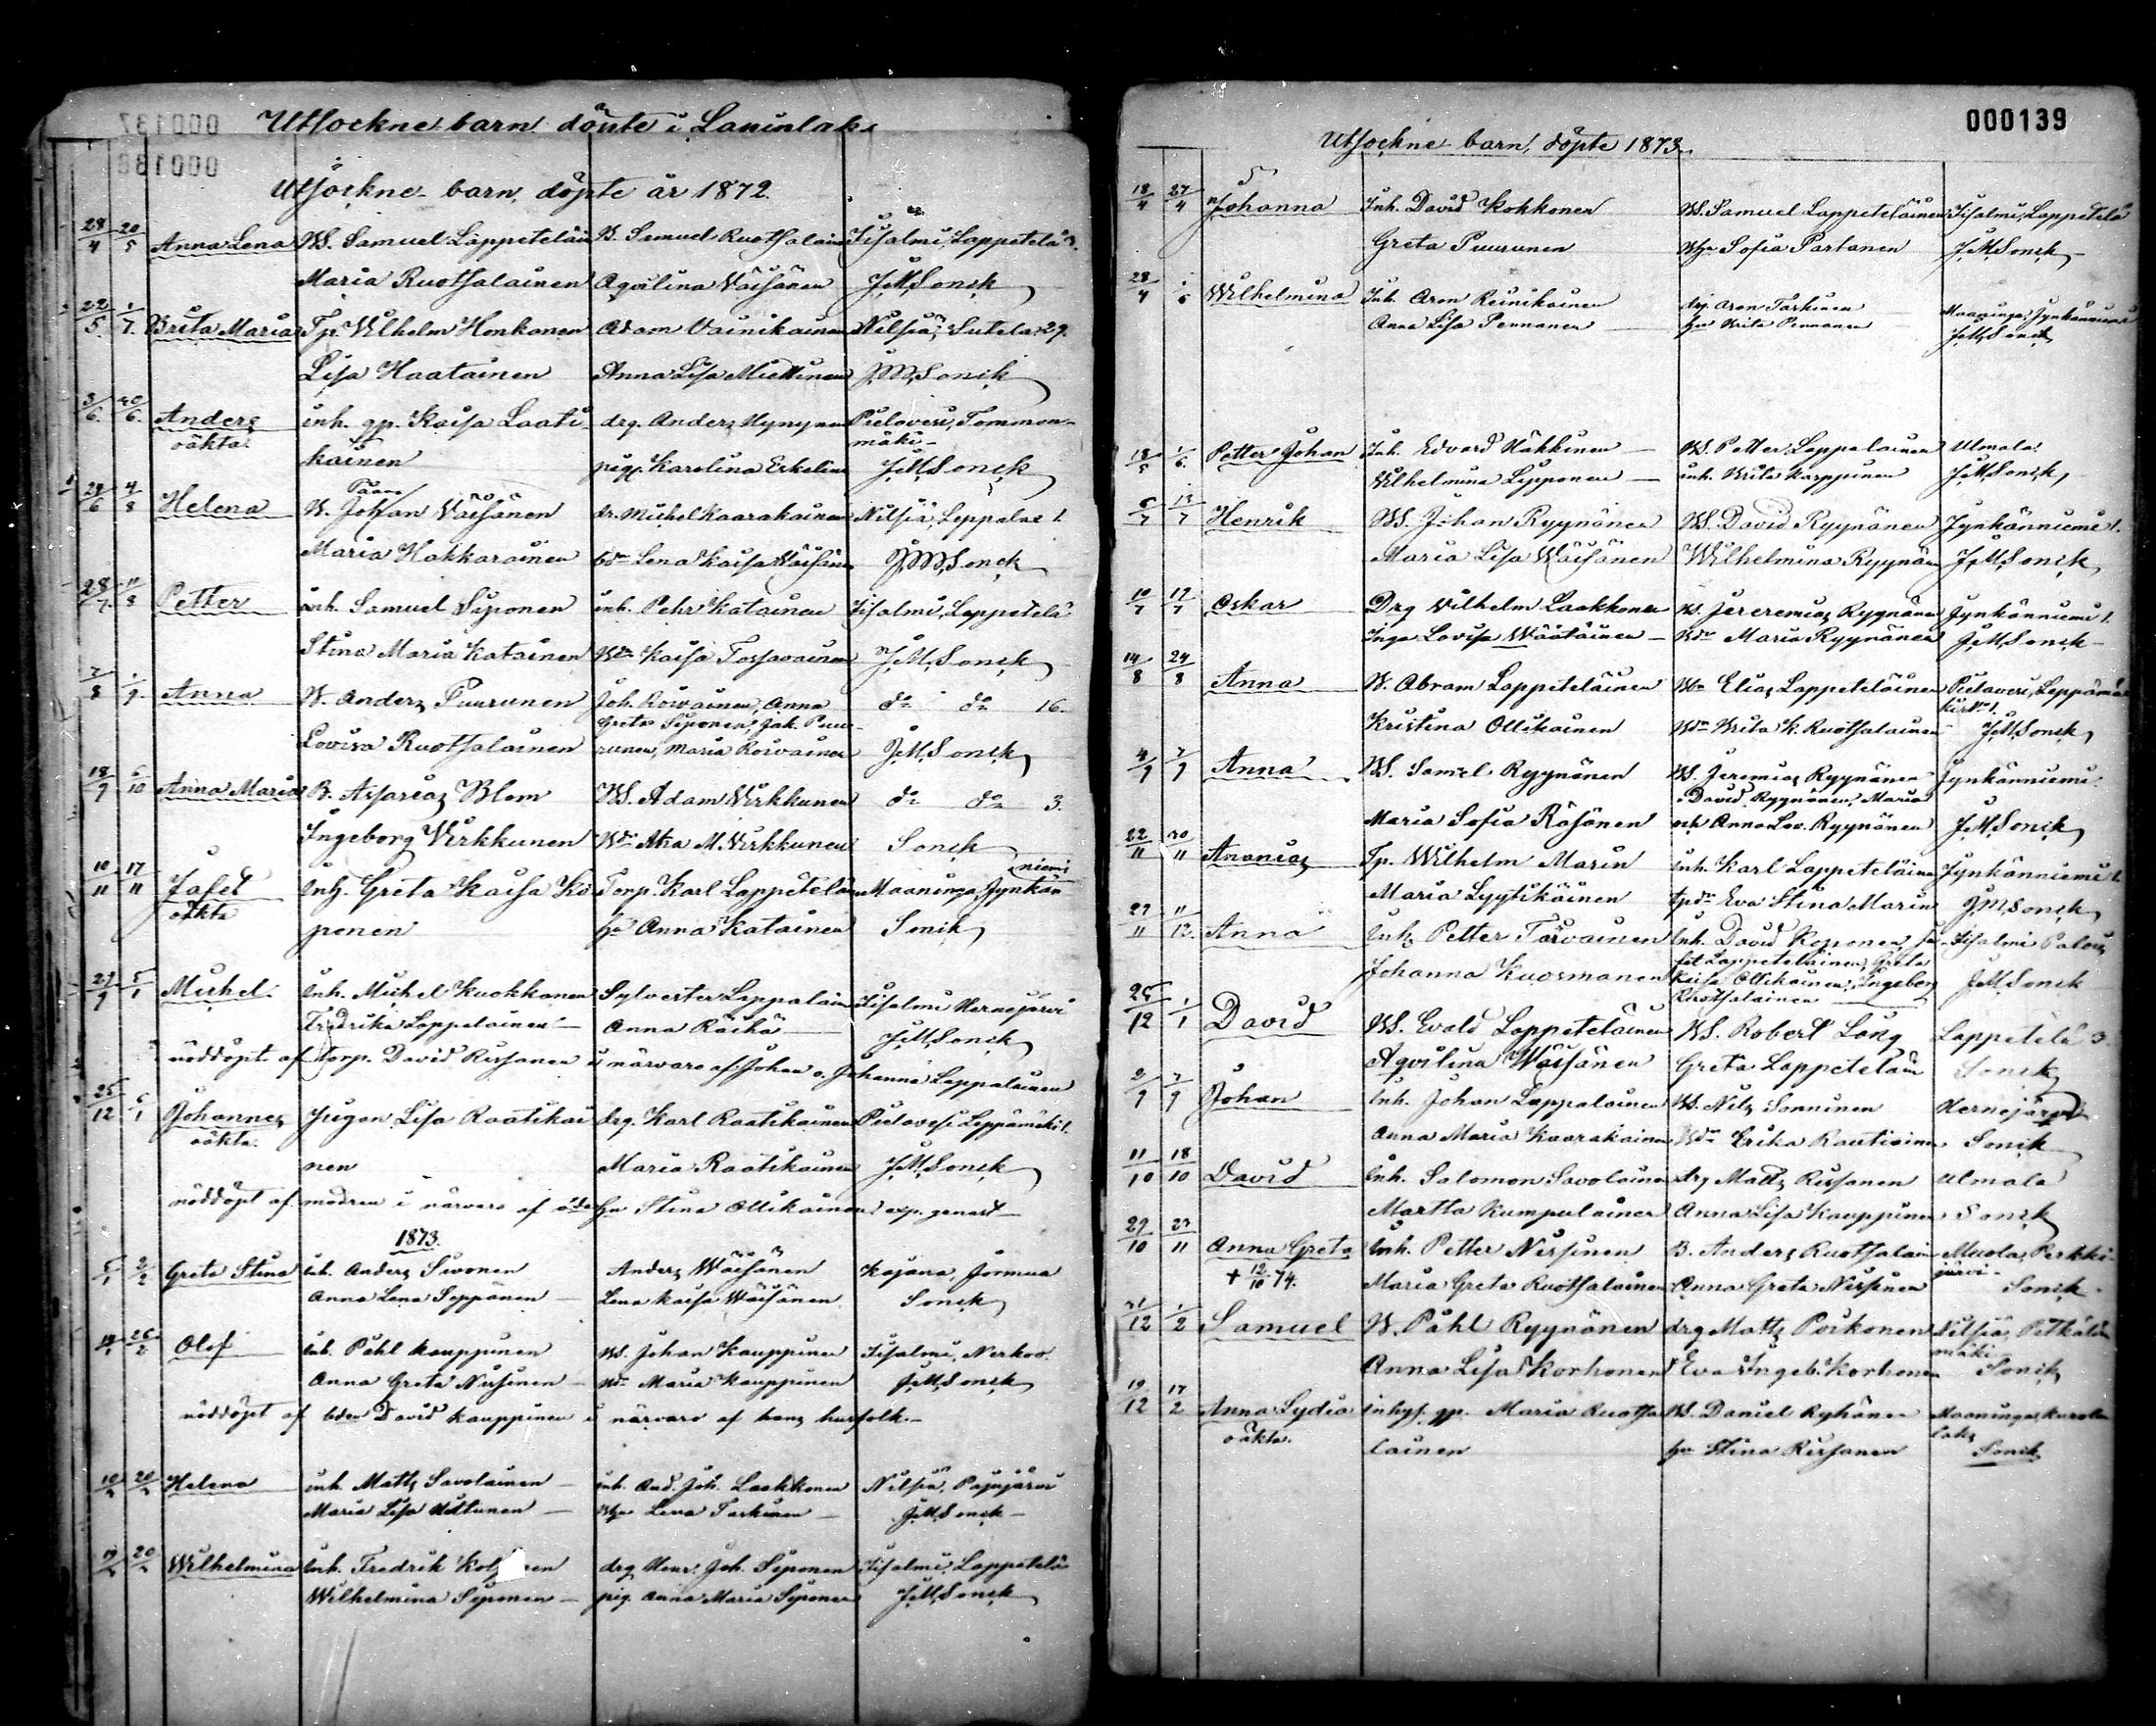 Utsockne barn döpte i Lapinlaks
Utsockne barn, döpte år 1872.
28/4 20/5 Anna Lena WS. Samuel Lappeteläin B. Samuel Ruotsalain Iisalmi, Lappetelä 3.
Maria Ruotsalainen Aqvilina Väisänen J.M.Sonck
22/5 1/7 Brita Maria Tp. Wilhelm Honkanen Adam Vainikainen Nilsiä, Sutela 29.
Lisa Haatainen Anna Lisa Miettinen J.M.Sonck
3/6 Anders inh. qp. Kaisa Laati- drg. Anders Hynynen Pielavesi, Tommon-
oäkta. mäki
kainen pig. Karolina Eskelin J.M.Sonck
24/6 4/8 Helena W. Johan Väisänen dr. Michel Kaarakainen Nilsiä, Leppälax 1.
Maria Hakkarainen bdr Lena Kaisa Väisänen J.M.Sonck
28/7 11/8 Petter inh. Samuel Siponen inh. Pehr Katainen Iisalmi, Lappetelä
Stina Maria Katainen Wdr Kaisa Tossavainen J.M.Sonck
7/8 1/9 Anna W. Anders Puurunen Joh. Roivainen, Anna do do 16.
Greta Siponen, Jak. Puu-
Lovisa Ruotsalainen runen, Maria Roivainen J.M.Sonck
18/9 6/10 Anna Maria B. Asarias Blom WS. Adam Virkkunen do do 3.
Ingeborg Virkkunen Wdr M. Virkkunen Sonck
niemi
10/11 17/11 Jafet Inh. Greta Kaisa Ko Torp. Karl Lappetelä Maaninga, Jynkän
oäkta
ponen hu Anna Katainen Sonck
29/9 5/1 Michel Inh. Michel Kuokkanen Sylvester Lappalain Iisalmi Hernejärvi
Fredrika Lappalainen Anna Räihä J.M.Sonck
nöddöpt af torp. David Rissanen i närvaro af Johan o. Johanna Lappalainen
25/12 6/1 Johannes Pigan Lisa Raatikai drg. Karl Raatikainen Pielavesi Leppämäki 1.
oäkta.
nen Maria Raatikainen J.M.Sonck
nöddöpt af modren i närvaro af hu Stina Ollikainen
1873.
6/1 2/2 Greta Stina inh. Anders Sivonen Anders Väisänen Kajana, Jormua
Anna Lena Seppänen Lena Kaisa Väisänen Sonck
26/2 Olof inh. Påhl Kauppinen WS. Johan Kauppinen Iisalmi, Nerkoo
Anna Greta Nissinen Wdr Maria Kauppinen J.M.Sonck
nöddöpt af bden David Kauppinen i närvaro af hans husfolk.
20/2 Helena inh. Matts Savolainen inh. And. Joh. Laakkonen Nilsiä, Pajujärvi
Maria Lisa Lena Tarkinen J.M.Sonck
20/2 Wilhelmina Inh. Fredrik drg Henr. Joh. Siponen Iisalmi, Lappetelä
Wilhelmina Siponen pig. Anna Maria Siponen J.M.Sonck
000139
Utsockne barn, döpte 1873.
18/4 27/4 Johanna Inh. David Kokkonen WS. Samuel Lappeteläinen Iisalmi, Lappetelä
Greta Puurunen Sofia Partanen J.M.Sonck
28/4 1/6 Wilhelmina Inh. Aron Reinikainen drg. Aron Tarkinen Maaninga, Jynkänniemi
Anna Lisa Pennanen hu Brita Pennanen J.M.Sonck
18/5 1/6 Petter Johan Inh. Edvard Häkkinen WS. Petter Lappalainen Ulmala
Wilhelmina Lipponen inh. Brita Karppinen J.M.Sonck
6/7 13/7 Henrik WS. Johan Ryynänen WS. David Ryynänen Jynkänniemi 1.
Maria Lisa Väisänen Wilhelmina Ryynän J.M.Sonck
10/7 19/7 Oskar Drg Wilhelm Laakkonen WS. Jeremias Ryynänen Jynkänniemi 1.
Inga Lovisa Väätäinen Bdr Maria Ryynänen J.M.Sonck
14/8 24/8 Anna W. Abram Lappeteläinen Elias Lappeteläinen Pielavesi, Leppämä
Kristina Ollikainen Wdr Brita K. Ruotsalainen J.M.Sonck
4/9 7/9 Anna WS. Samel Ryynänen WS. Jeremias Ryynänen Jynkänniemi
David Ryynänen, Maria
Maria Sofia Räsänen och Anna Lov. Ryynänen J.M.Sonck
22/11 30/11 Ananias Tp. Wilhelm Marin inh. Karl Lappeteläin Jynkänniemi 1.
Maria Lyytikäinen tpdr Eva Stina Marin J.M.Sonck
27/11 11/12 Anna Inh. Petter Tarvainen Inh. David Koponen, Ja- Iisalmi Palois
fet Lappeteläinen, Greta
Johanna Kuosmanen Kaisa Ollikainen, Ingeborg J.M.Sonck
Ruotsalainen
25/12 1/1 David WS. Evald Lappeteläinen WS. Robert Lång Lappetelä 3.
Aqvilina Väisänen Greta Lappeteläin Sonck
2/9 7/9 Johan Inh. Johan Lappalainen WS. Nils Sonninen Hernejärvi
Anna Maria Kaarakainen Wdr Erika Rautiainen Sonck
11/10 18/10 David Inh. Salomon Savolainen drg Matts Rissanen Ulmala
Martta Kumpulainen Anna Lisa Kauppinen Sonck
29/10 23/11 Anna Greta Inh. Petter Nissinen B. Anders Ruotsalain Muola, Perkki-
järvi
+ 12/10 74. Maria Greta Ruotsalainen Anna Greta Nissinen Sonck
31/12 1/2 Samuel W. Påhl Ryynänen drg Matts Poikonen Nilsiä,
mäki
Anna Lisa Korhonen Eva Ingeb. Korhonen Sonck
19/12 17/2 Anna Lydia inhys. qp. Maria Ruotsa WS. Daniel Ryhänen Maaninga,
oäkta.
lainen hu Stina Rissanen Sonck